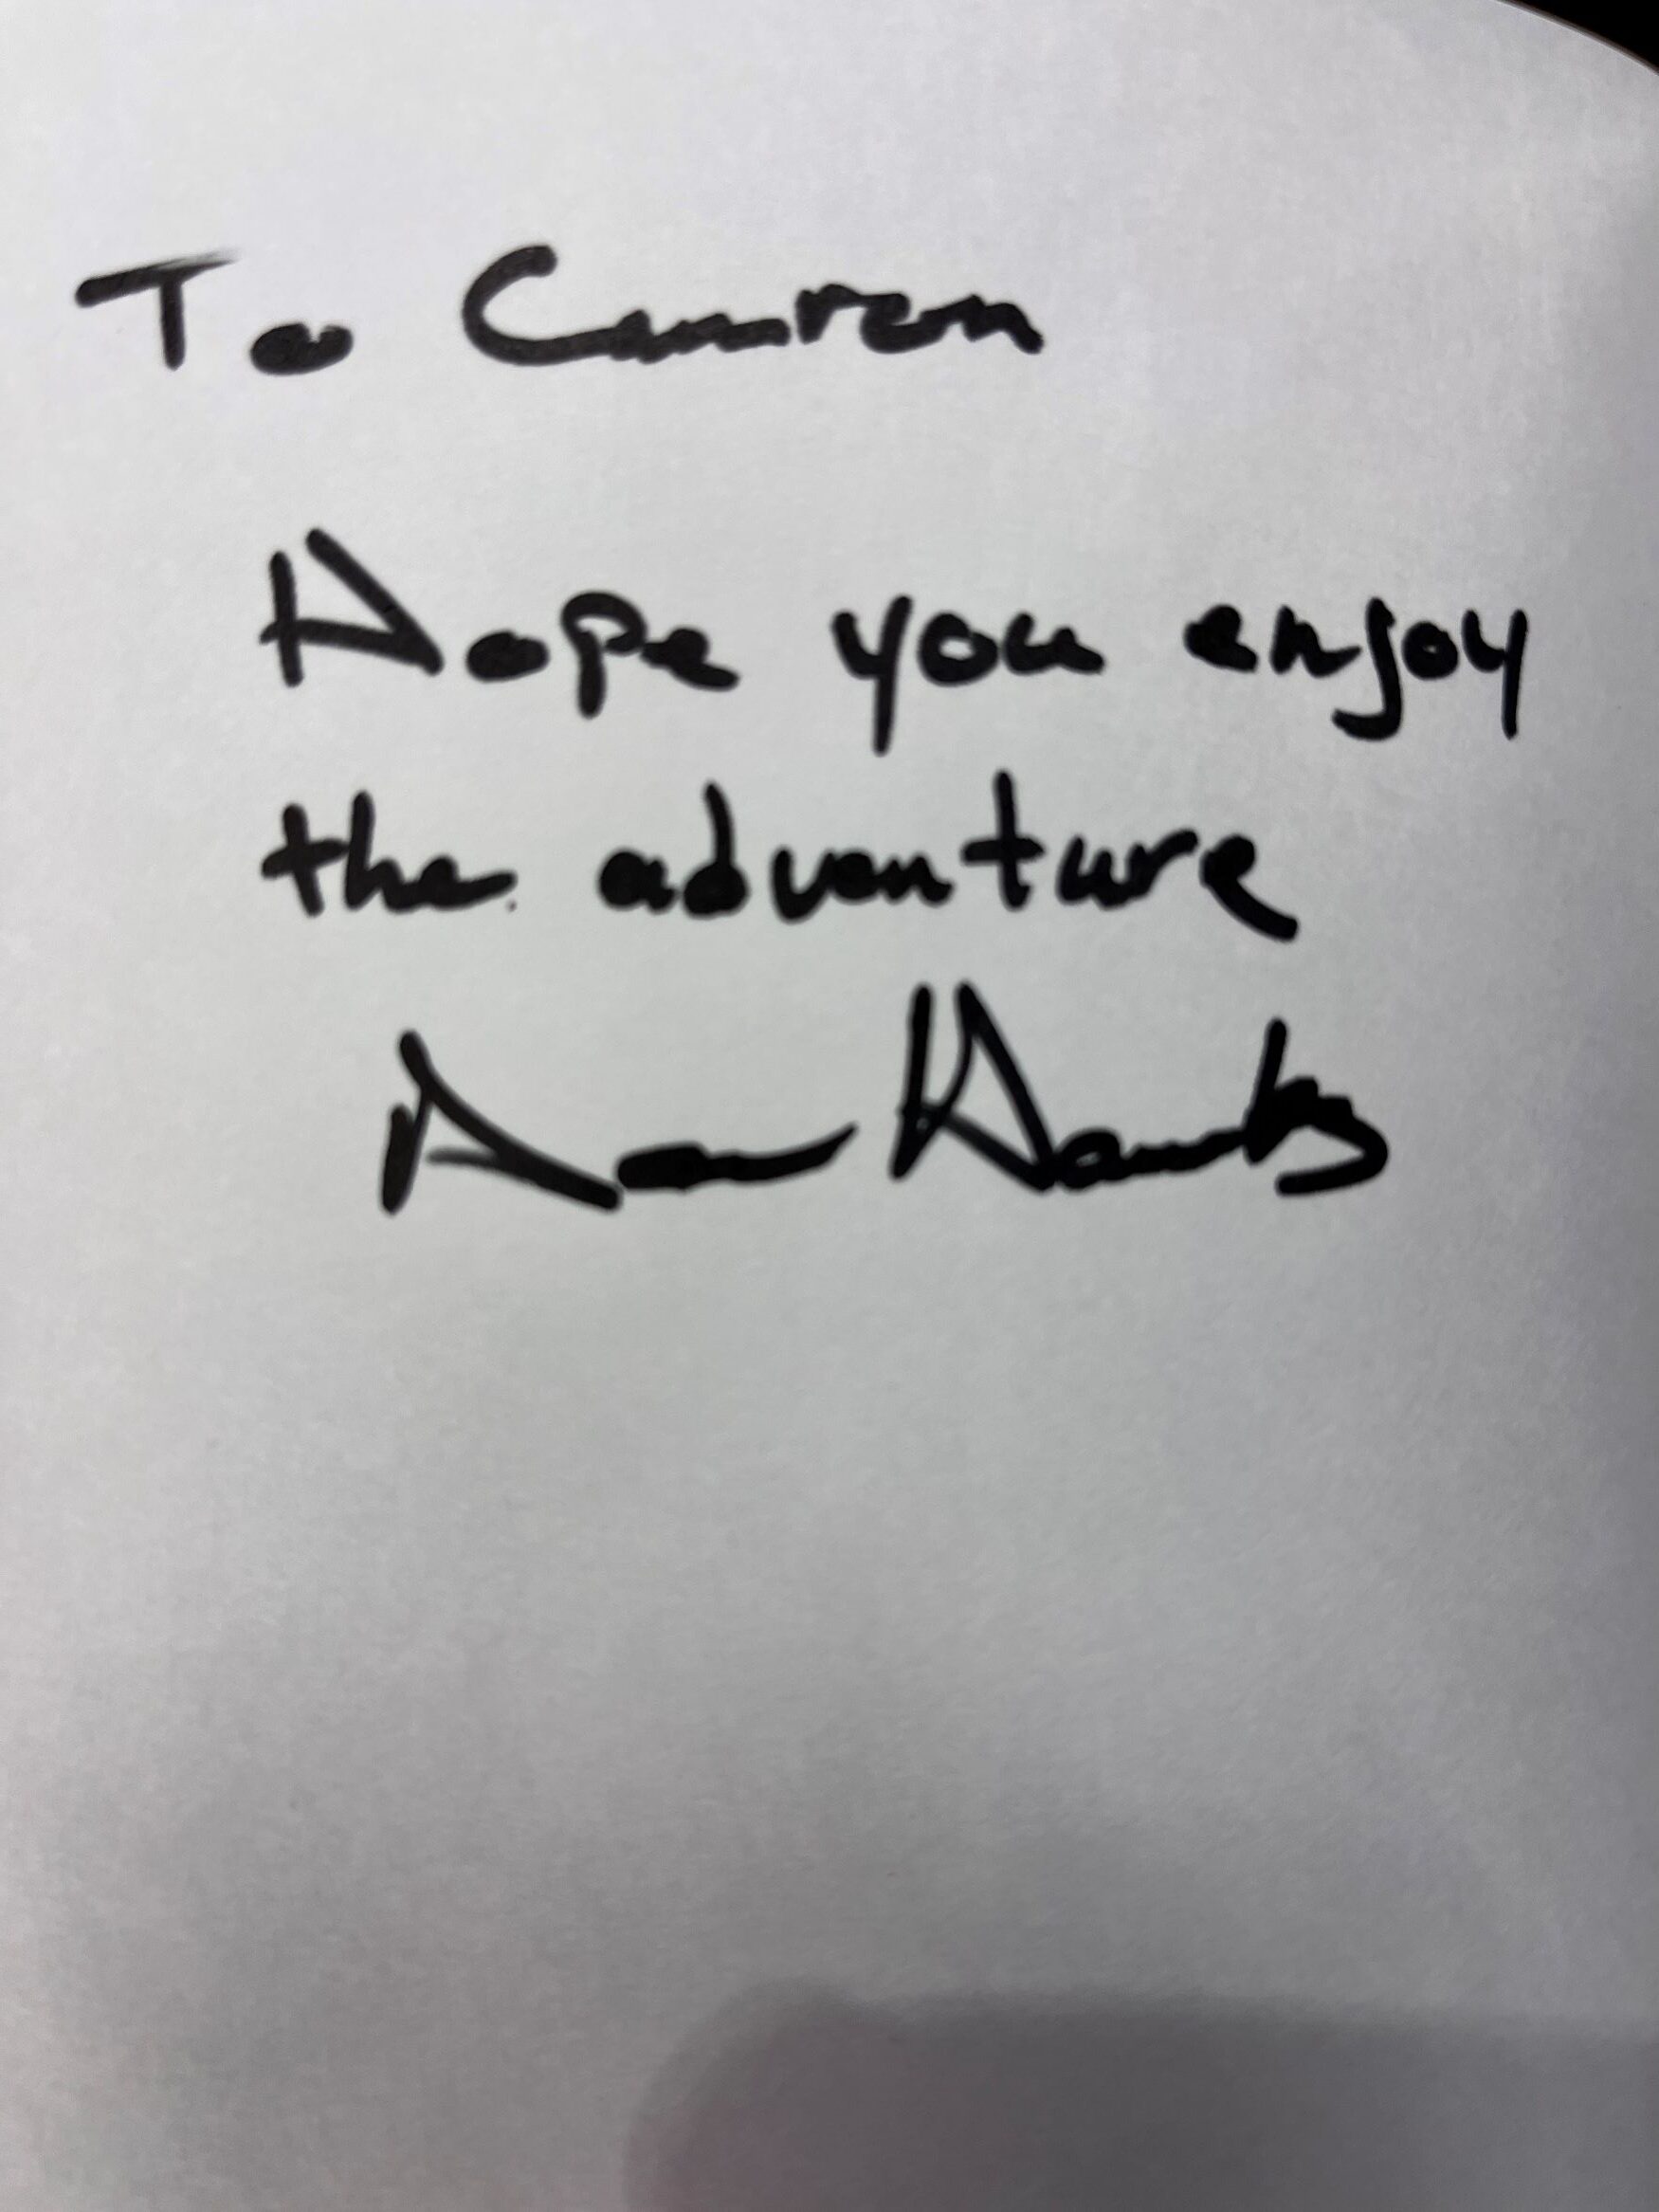 To Cameron
Hope you enjoy
the adventure